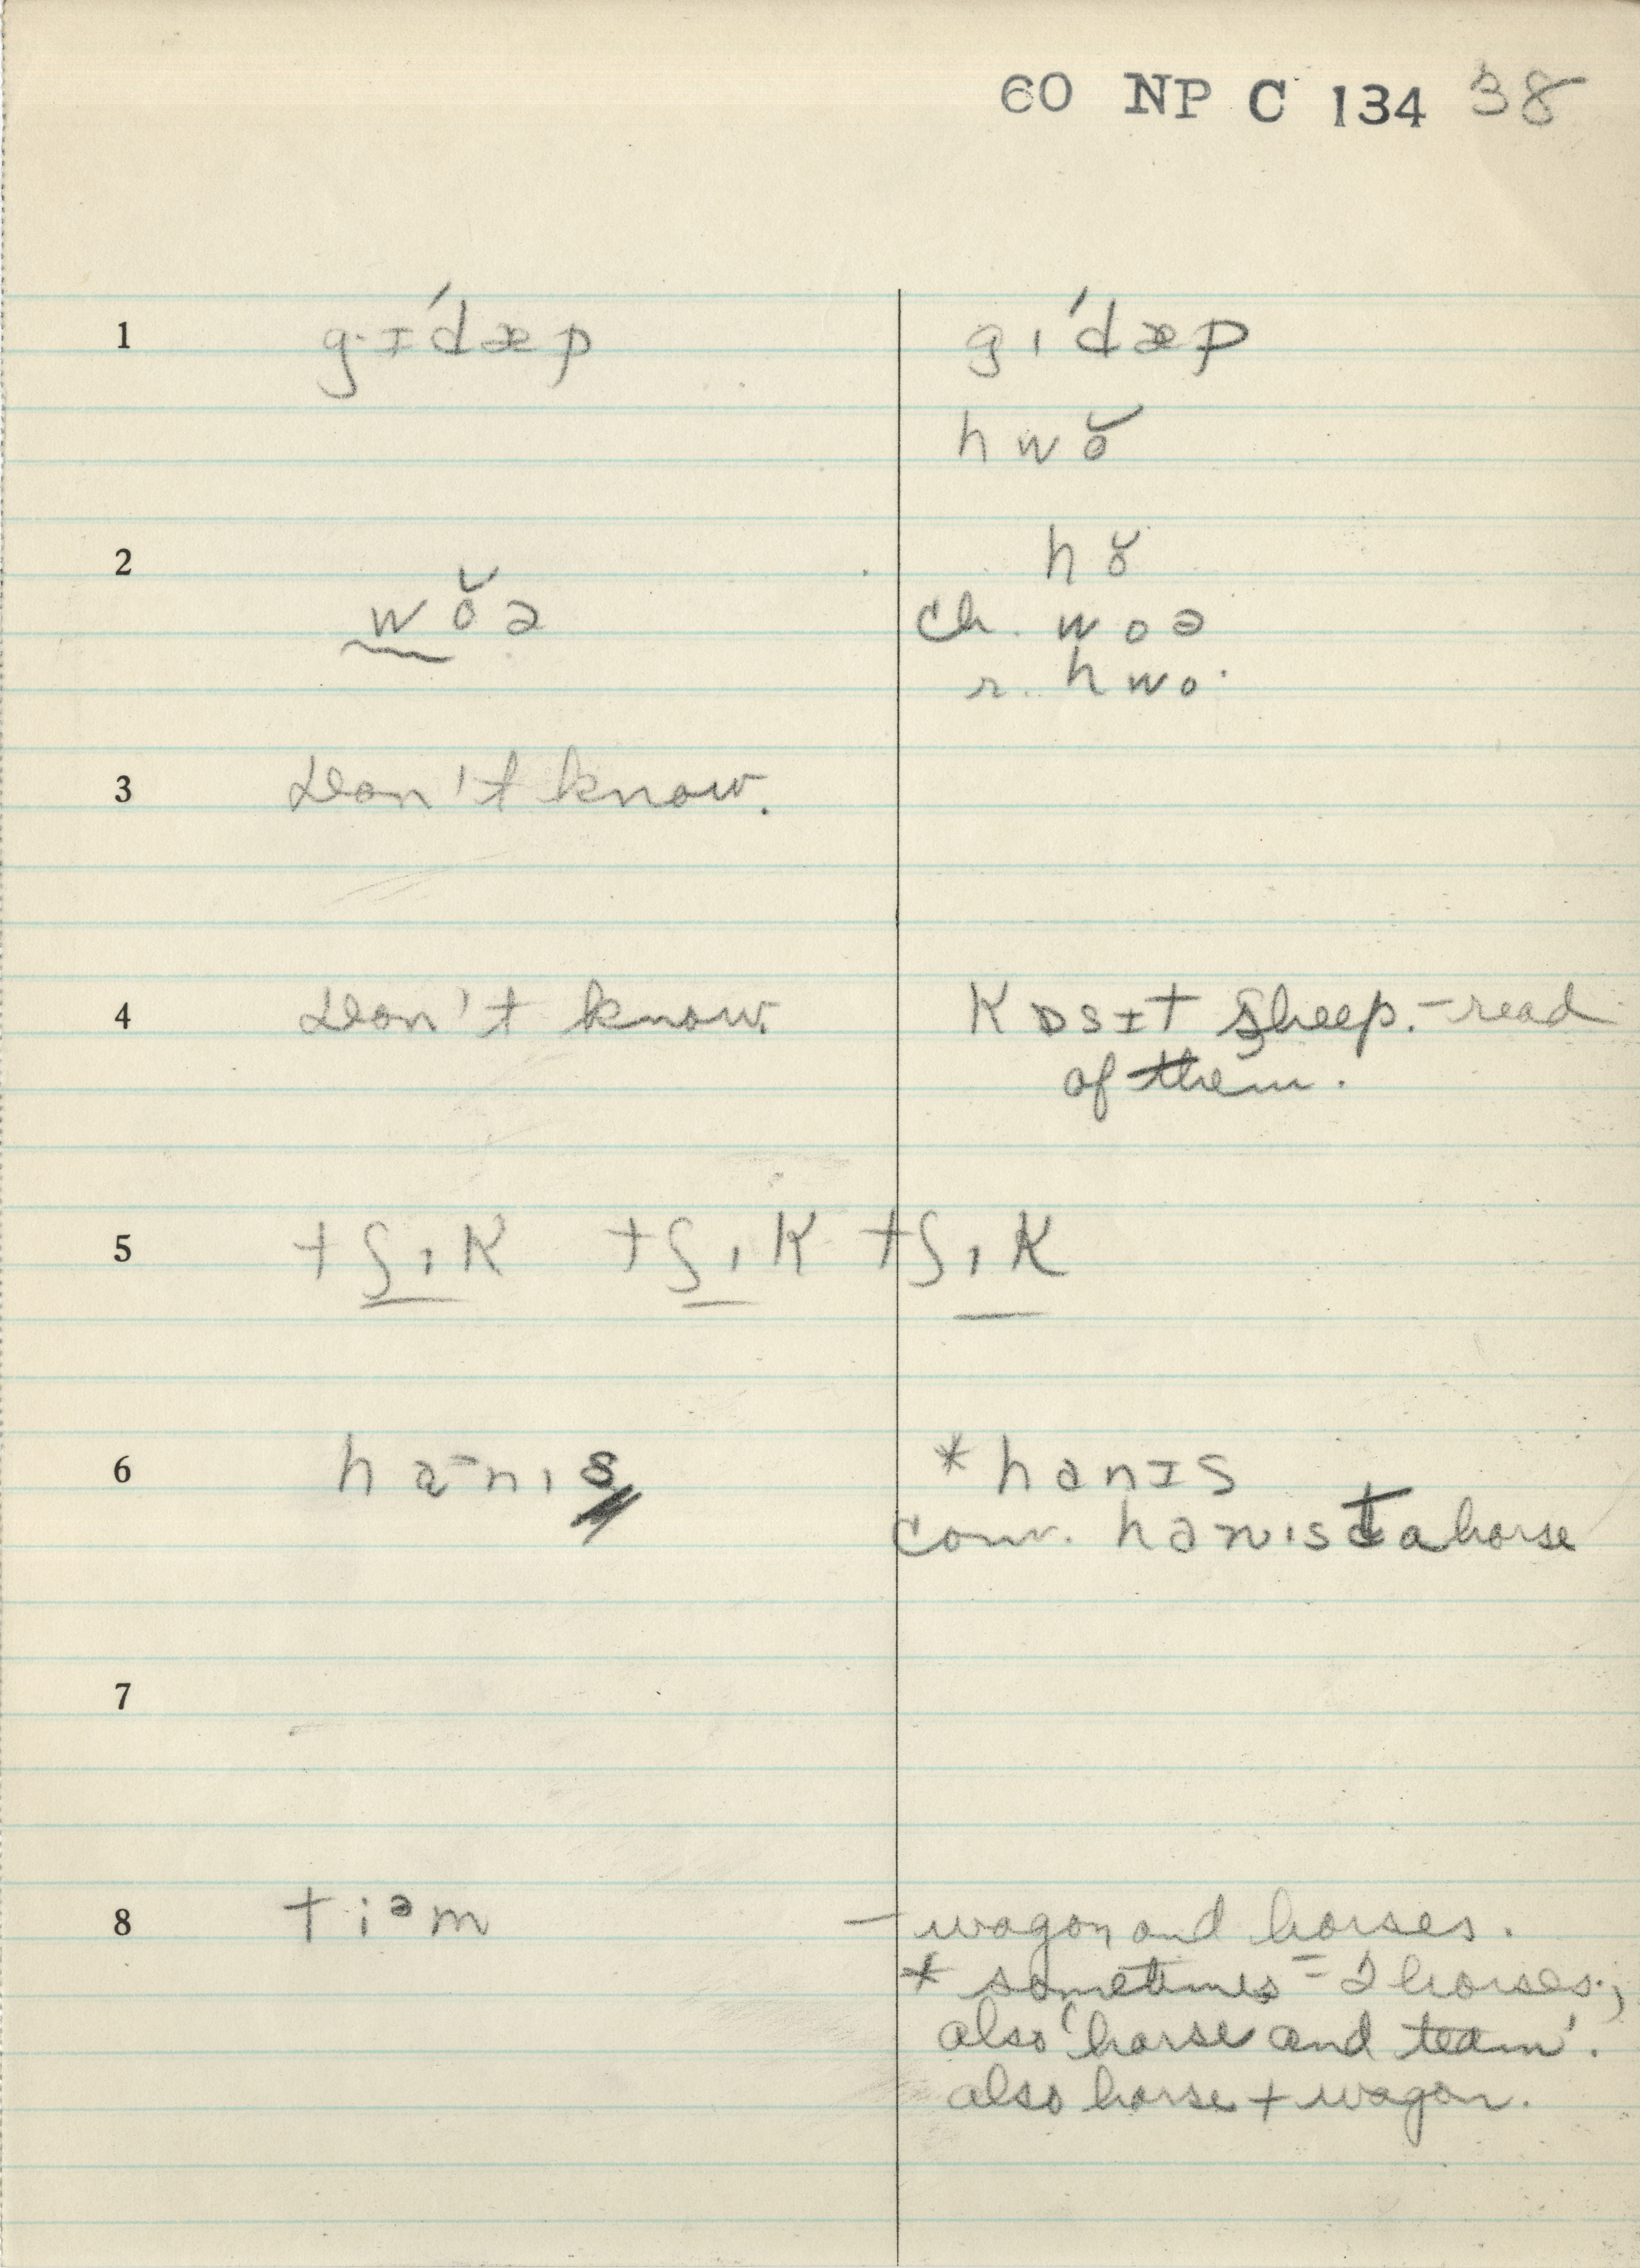 60 NP C 134 38
1 g·ɪ′dæp g ɪ′dæp
hwŏ
2 hŏ
wŏə ch. woə
r. hwo·
3 Don't know.
4 Don't know. kɒsɪt sheep. – read
of them.
5 tʃɪk tʃɪk tʃɪk
6 ha-nɪs * hanɪs
conv. hanɪst a horse
7
8 tiəm – wagon and horses.
* sometimes = 2 horses.;
also 'horse and team'.
also horse + wagon.